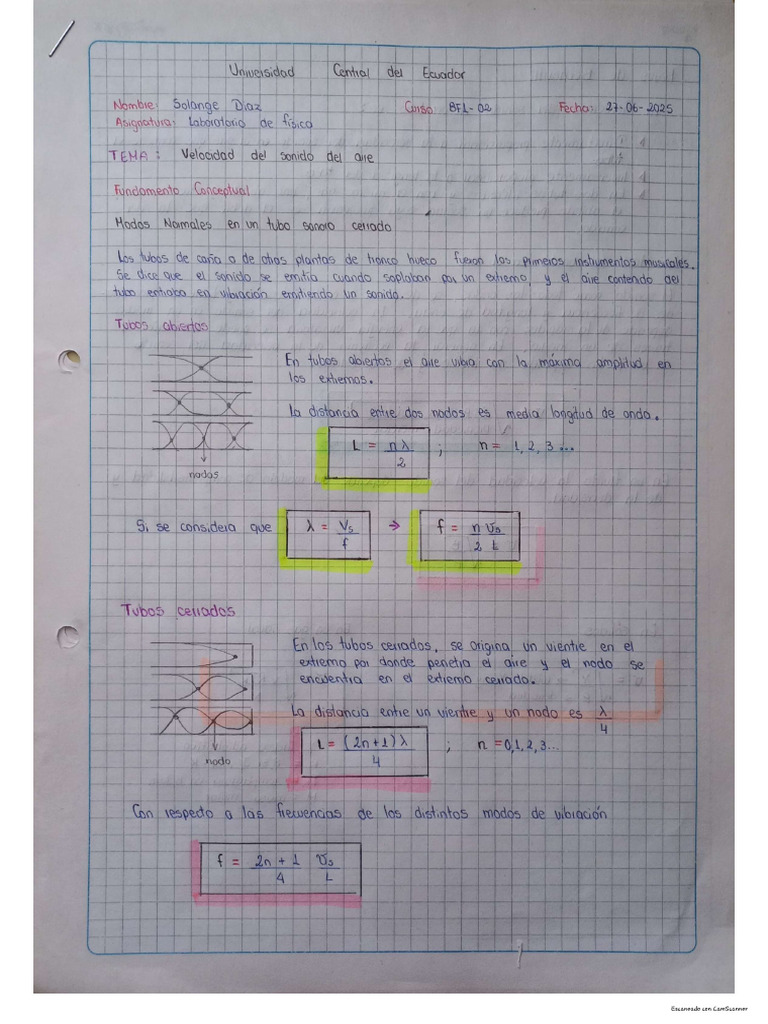 Universidad Central del Ecuador
Nombre: Solange Diaz Curso BFL-02 Fecha: 27-06-2025
Asignatura: Laboratorio de física
TEMA: Velocidad del sonido del aire
Fundamento Conceptual
Modos Normales en un tubo sonoro cerrado
Los tubos de caña o de otras plantas de tronco hueco fueron los primeros instrumentos musicales.
Se dice que el sonido se emitía cuando soplaban por un extremo, y el aire contenido del
tubo entraba en vibración emitiendo un sonido.
Tubos abiertos
En tubos abiertos el aire vibra con la máxima amplitud en
los extremos.
La distancia entre dos nodos es media longitud de onda.
L = nλ/2 ; n = 1, 2, 3...
nodos
Si se considera que λ = Vs/f → f = n/2 Vs/L
Tubos cerrados
En los tubos cerrados, se origina un vientre en el
extremo por donde penetra el aire y el nodo se
encuentra en el extremo cerrado.
La distancia entre un vientre y un nodo es λ/4
L = (2n+1)λ/4 ; n = 0,1,2,3...
nodo
Con respecto a las frecuencias de los distintos modos de vibración
f = 2n+1/4 Vs/L
Escaneado con CamScanner